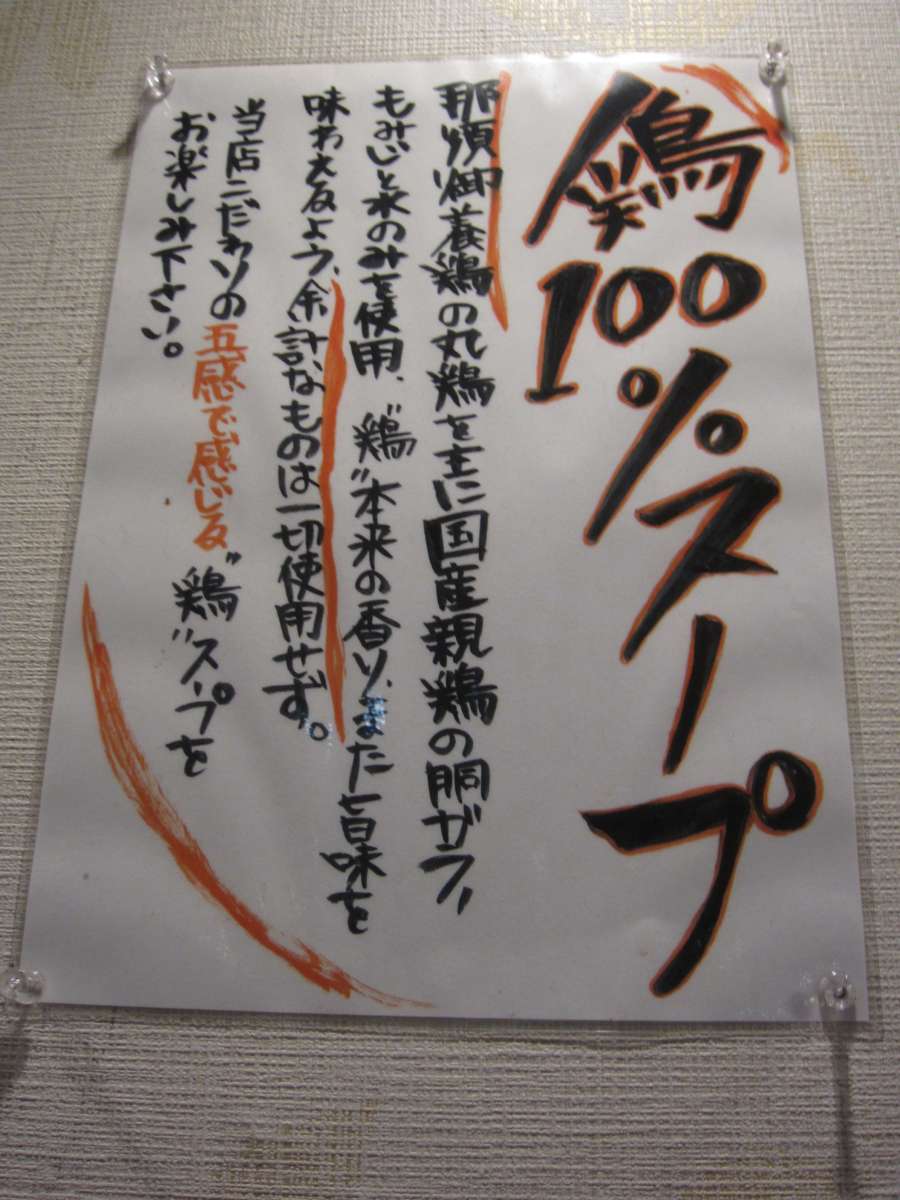 鶏100%スープ
那須御養鶏の丸鶏を主に国産親鶏の胴ガラ、
もみじと水のみを使用、〝鶏〟本来の香り、また旨味を
味わえるよう、余計なものは一切使用せず。
当店こだわりの五感で感じる〝鶏〟スープを
お楽しみ下さい。